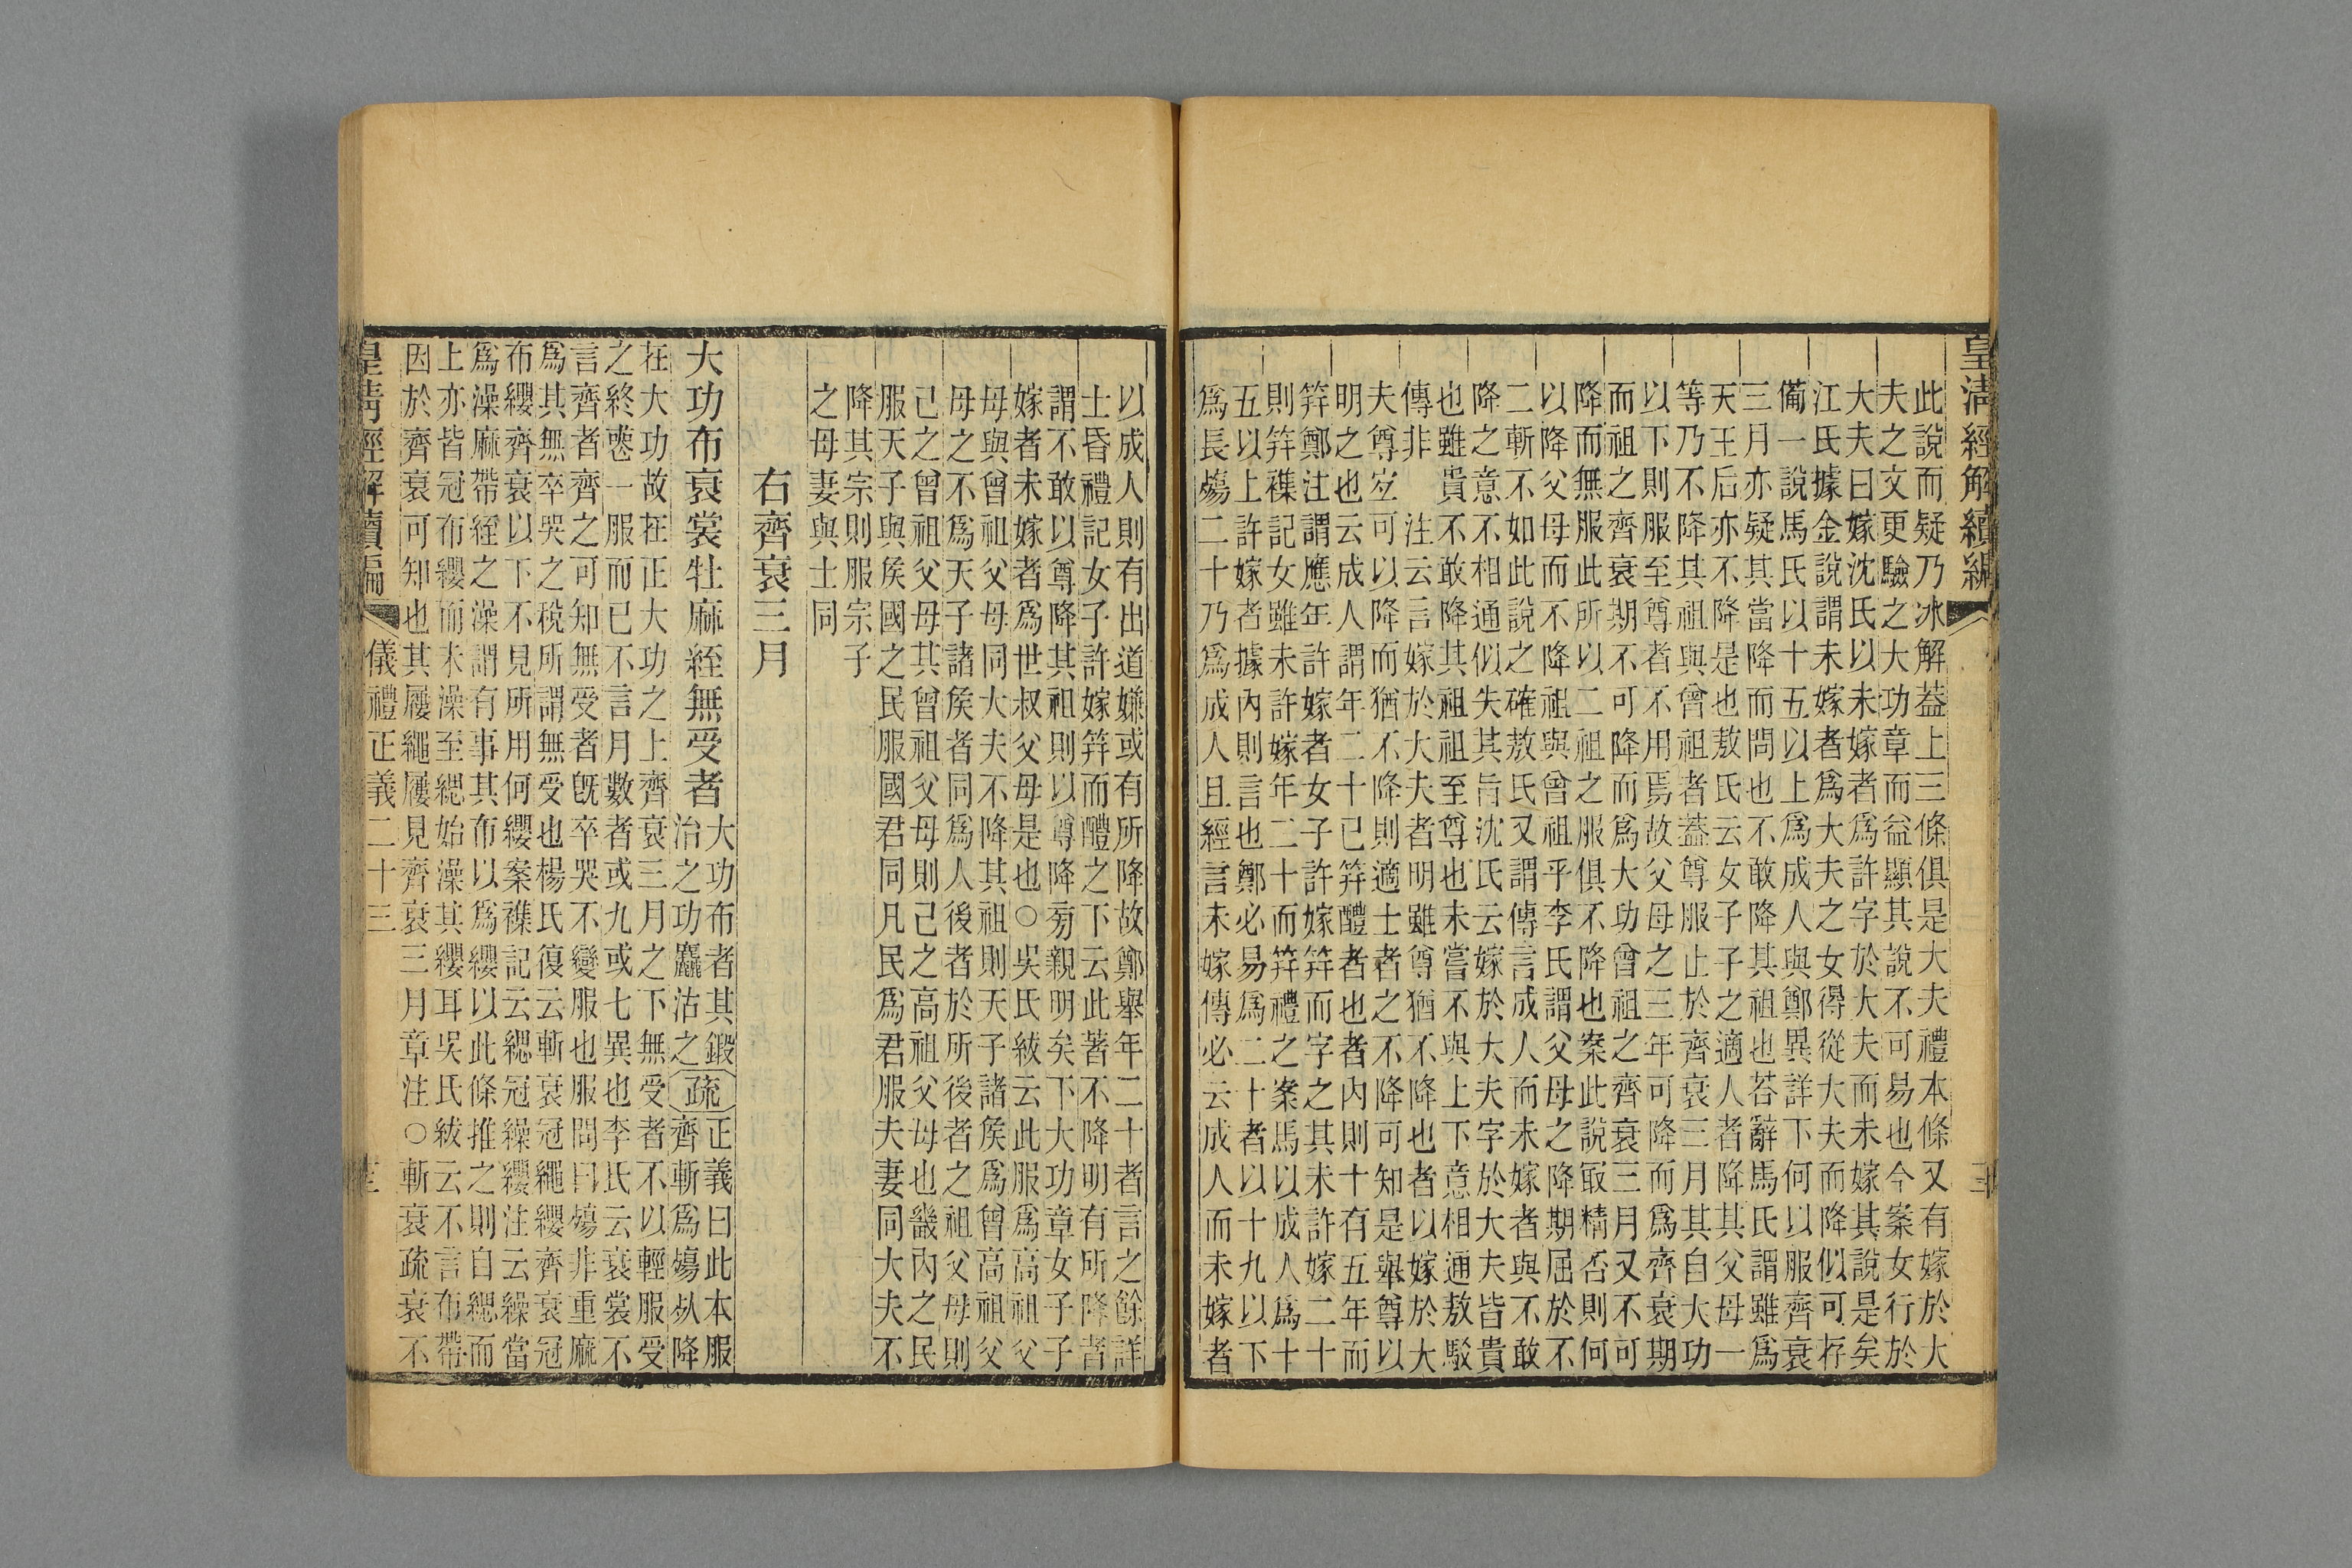 皇清經解續編
此說而疑乃冰解葢上三條俱是大夫禮本條又有嫁於大
夫之文更驗之大功章而益顯其說不可易也今案女行於
大夫曰嫁沈氏以未嫁者爲許字於大夫而未嫁其說是矣
江氏據金說謂未嫁者爲大夫之女得從大夫而降似可存
備一說馬氏以十五以上爲成人與鄭異詳下何以服齊衰
三月亦疑其當降而問也不敢降其祖也荅辭馬氏謂雖爲
天王后亦不降是也敖氏云女子子之適人者降其父母一
等乃不降其祖與曾祖者葢尊服止於齊衰三月其自大功
以下則服至尊者不用焉故父母之三年可降而爲齊衰期
而祖之齊衰期不可降而爲大功曾祖之齊衰三月又不可
降而無服此所以二祖之服俱不降也案此說㝡精否則何
以降父母而不降祖與曾祖乎李氏謂父母之降期屈於不
二斬不如此說之確敖氏又謂傳言成人而未嫁者與不敢
降之意不相通似失其旨沈氏云嫁於大夫字於大夫皆貴
也雖貴不敢降其祖祖至尊也未嘗不與上下意相通敖駁
傳非　注云言嫁於大夫者明雖尊猶不降也者以嫁於大
夫尊空可以降而猶不降則適士者之不降可知是舉尊以
明之也云成人謂年二十已筓醴者也者內則十有五年而
筓鄭注謂應年許嫁者女子許嫁筓而字之其未許嫁二十
則筓襍記女雖未許嫁年二十而筓禮之案馬以成人爲十
五以上許嫁者據內則言也鄭必易爲二十者以十九以下
爲長殤二十乃爲成人且經言未嫁傳必云成人而未嫁者
以成人則有出道嫌或有所降故鄭舉年二十者言之餘詳
士昏禮記女子許嫁筓而醴之下云此著不降明有所降者
謂不敢以尊降其祖則以尊降㫄親明矣下大功章女子子
嫁者未嫁者爲世叔父母是也○吳氏紱云此服爲高祖父
母與曾祖父母同大夫不降其祖則天子諸矦爲曾高祖父
母之不爲天子諸矦者同爲人後者於所後者之祖父母則
己之曾祖父母其曾祖父母則己之高祖父母也畿內之民
服天子與矦國之民服國君同凡民爲君服夫妻同大夫不
降其宗則服宗子
之母妻與士同
右齊衰三月
大功布衰裳牡麻絰無受者
大功布者其鍛
治之功麤沽之
疏
正義曰此本服
齊斬爲殤从降
在大功故在正大功之上齊衰三月之下無受者不以輕服受
之終喪一服而已不言月數者或九或七異也李氏云衰裳不
言齊者齊之可知無受者旣卒哭不變服也服問曰殤非重麻
爲其無卒哭之稅所謂無受也楊氏復云斬衰冠繩纓齊衰冠
布纓齊衰以下不見所用何纓案襍記云緦冠繰纓注云繰當
爲澡麻帶絰之澡謂有事其布以爲纓以此條推之則自緦而
上亦皆冠布纓而未澡至緦始澡其纓耳吳氏紱云不言布帶
因於齊衰可知也其屨繩屨見齊衰三月章注○斬衰疏衰不
皇清經解續編
儀禮正義二十三